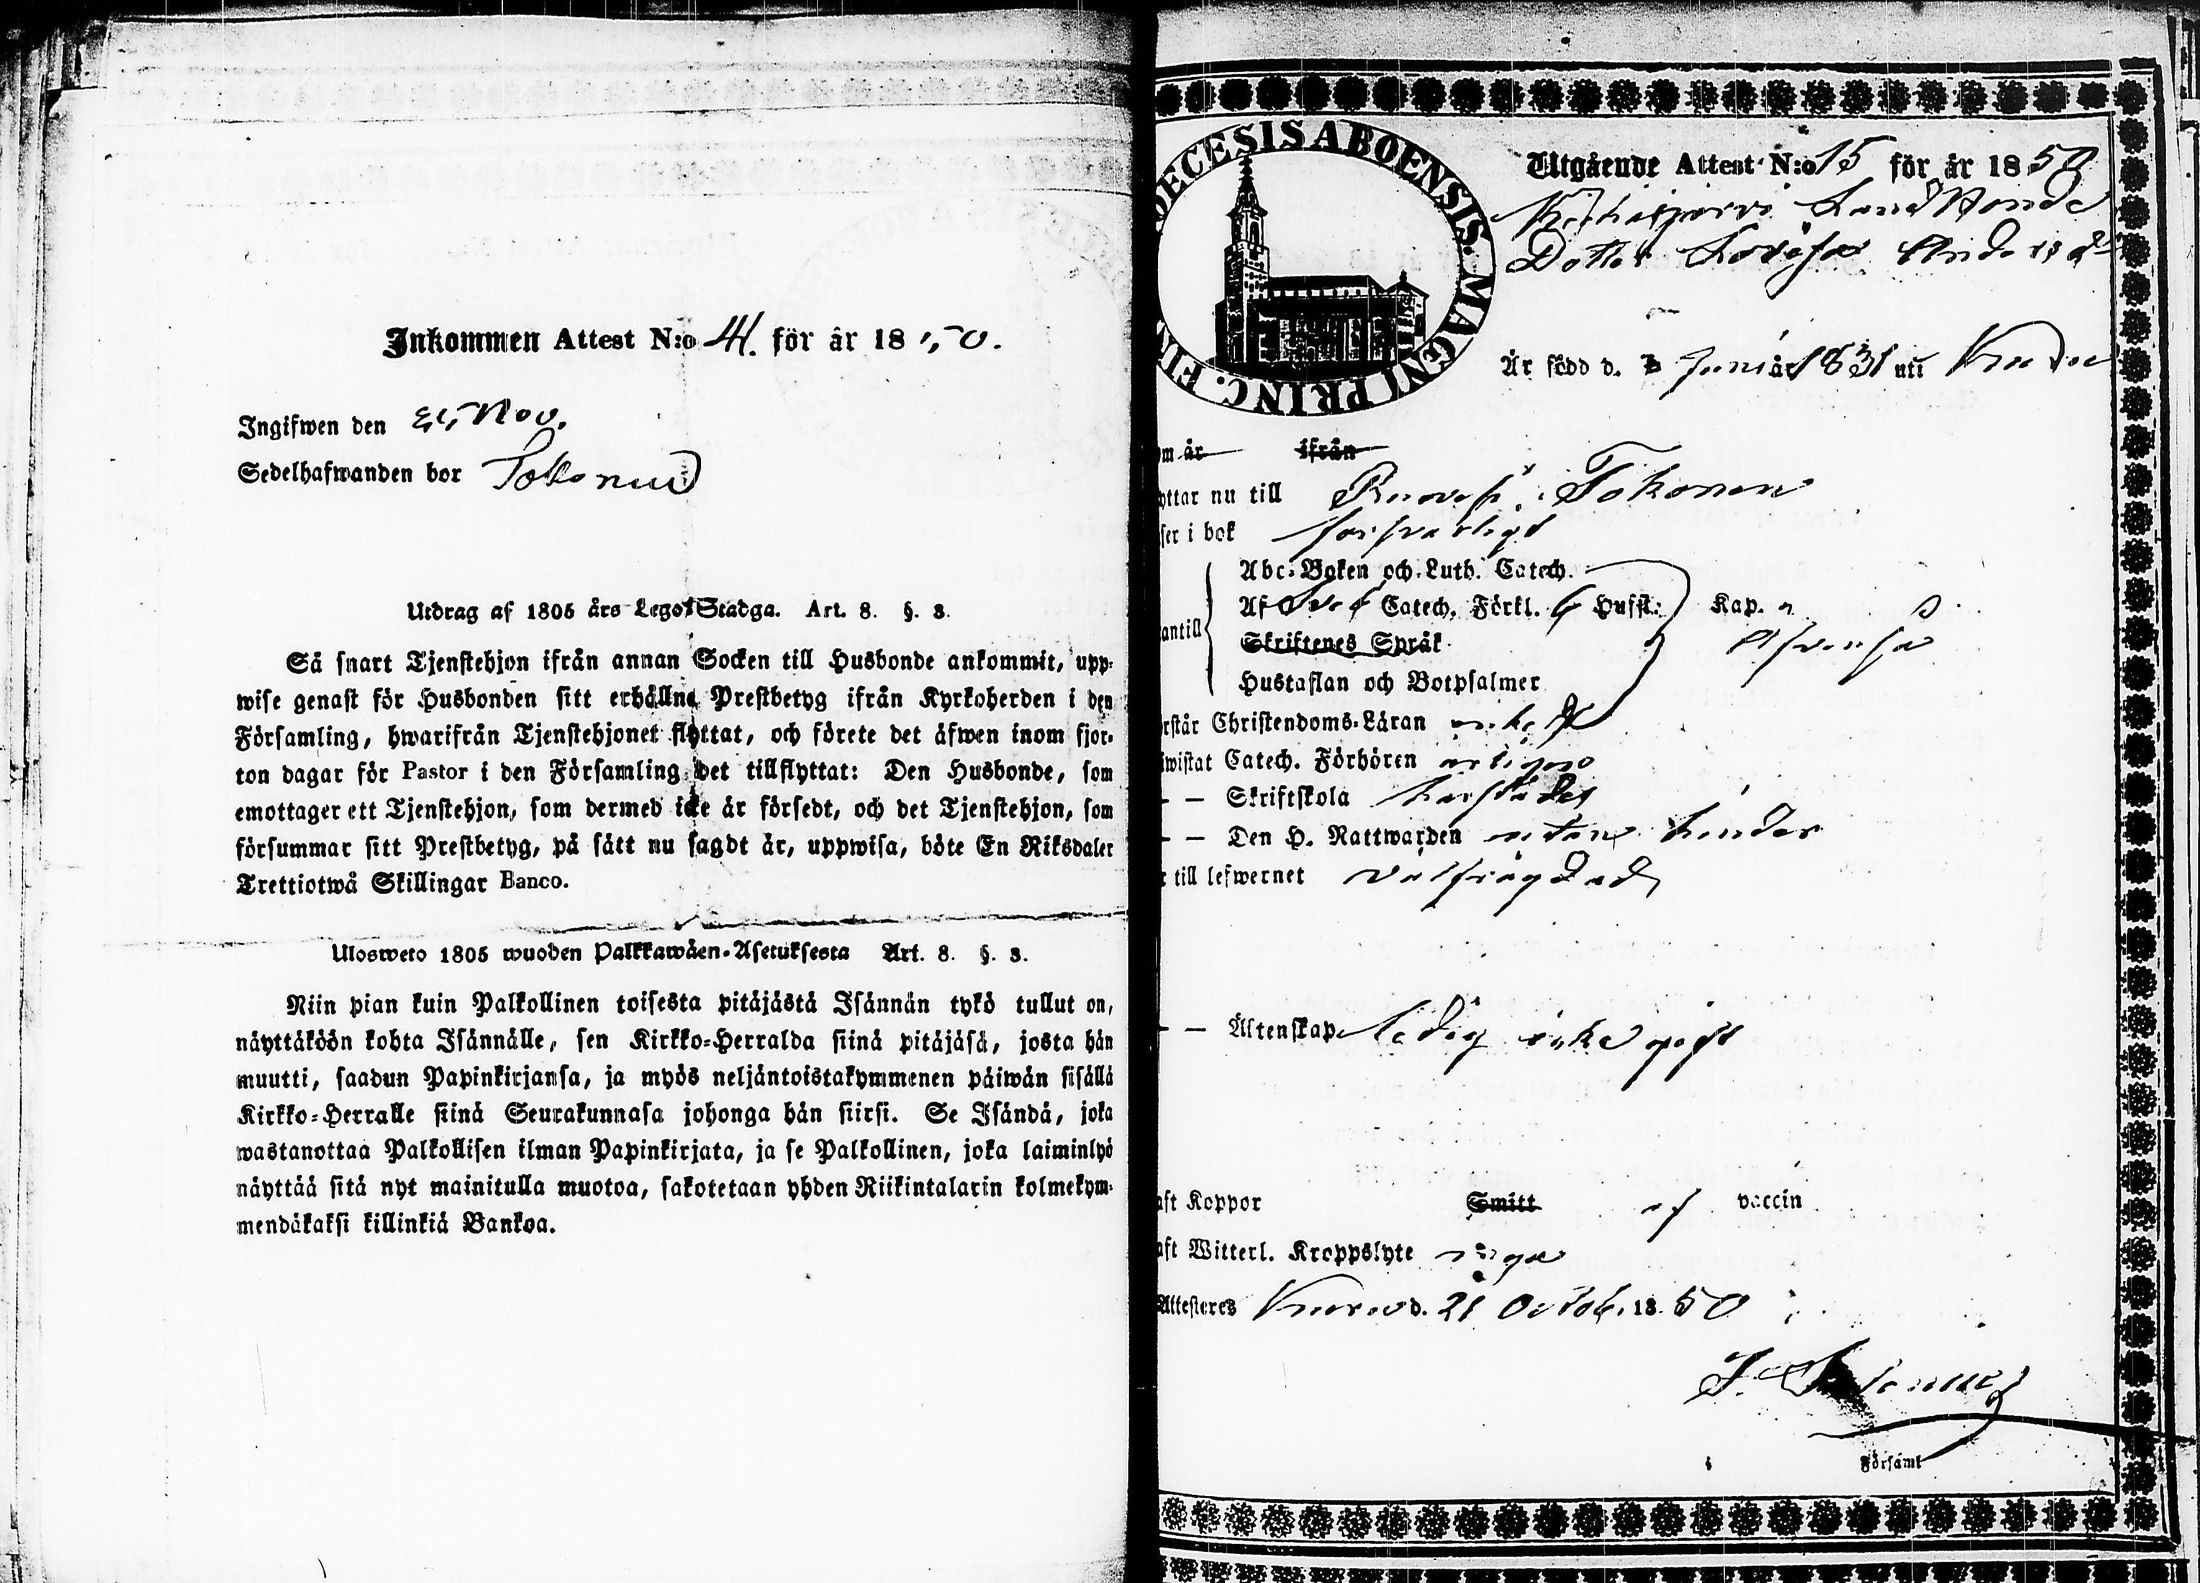 Inkommen Attest N:o 41. för år 1850.
Ingifwen den Nov.
Sedelhafwanden bor Tokonen
Utdrag af 1805 års Lego-Stadga. Art. 8. §. 3.
Så snart Tjenstehjon ifrån annan Socken till Husbonde ankommit, upp-
wise genast för Husbonden sitt erhållne Prestbetyg ifrån Kyrkoherden i den
Församling, hwarifrån Tjenstehjonet flyttat, och förete det äfwen inom fjor-
ton dagar för Pastor i den Församling det tillflyttat: Den Husbonde, som
emottager ett Tjenstehjon, som dermed icke är försedt, och det Tjenstehjon, som
försummar sitt Prestbetyg, på sätt nu sagdt är, uppwisa, böte En Riksdaler
Trettiotwå Skillingar Banco.
Ulosweto 1805 wuoden Palkkawäen-Asetuksesta Art. 8. §. 3.
Niin pian kuin Palkollinen toisesta pitäjästä Isännän tykö tullut on,
näyttäköön kohta Isännälle, sen Kirkko-Herralda siinä pitäjäsä, josta hän
muutti, saadun Papinkirjansa, ja myös neljäntoistakymmenen päiwän sisällä
Kirkko-Herralle siinä Seurakunnasa johonga hän siirsi. Se Isändä, joka
wastanottaa Palkollisen ilman Papinkirjata, ja se Palkollinen, joka laiminlyö
näyttää sitä nyt mainitulla muotoa, sakotetaan yhden Riikintalarin kolmekym-
mendäkaksi killinkiä Bankoa.
OECESIS ABOENSIS. MAGNI PRINC. FIN
Utgående Attest N:o 15 för år 1850
Landbonde
Dotter Lovisa Anders d:r
Är född d. Juni år 1831 uti
om är ifrån
yttar nu till Ruovesi Tokonen
ser i bok försvarligt
Abc-Boken och Luth. Catech.
Af Sveb Catech. Förkl. 6 Hufst. Kap.
antill
Skriftenes Språk
Hustaflan och Botpsalmer
rstår Christendoms-Läran enkelt
wistat Catech. Förhören
— Skriftskola härstädes
— Den H. Nattwarden utan hinder
r till lefwernet välfrägdad
— Äktenskap ledig icke gift
aft Koppor Smitt af vaccin
aft Witterl. Kroppslyte inga
Attesteres d. 21 Octob. 1850
Församl